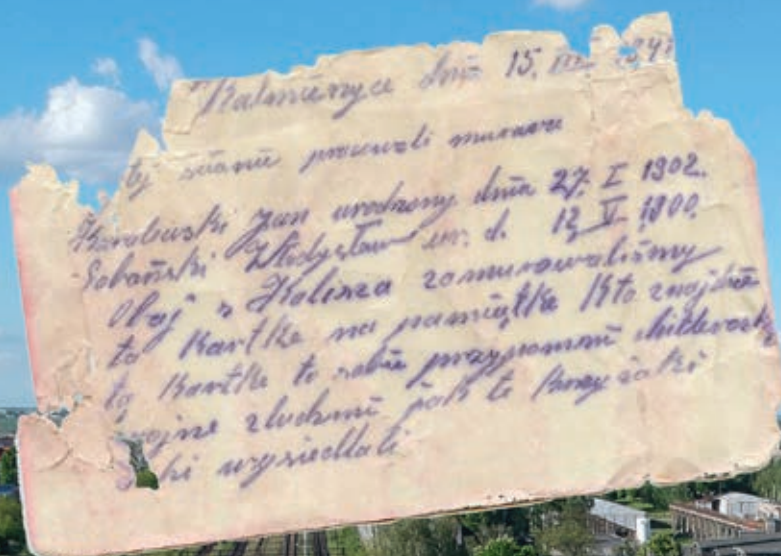 Kalmierzyce dnia 15. III. 1941
tej scianie pracowali murarze
Karolewski Jan urodzony dnia 27. I 1902.
Sobański Władysław ur. d. 12 V 1900.
Obaj z Kalisza zamurowaliśmy
tą Kartke na pamiątke Kto znajdzie
tą Kartke to sobie przypomni hitlerowską
wojne zludzmi jak te Krzyżaki
wysiedlali